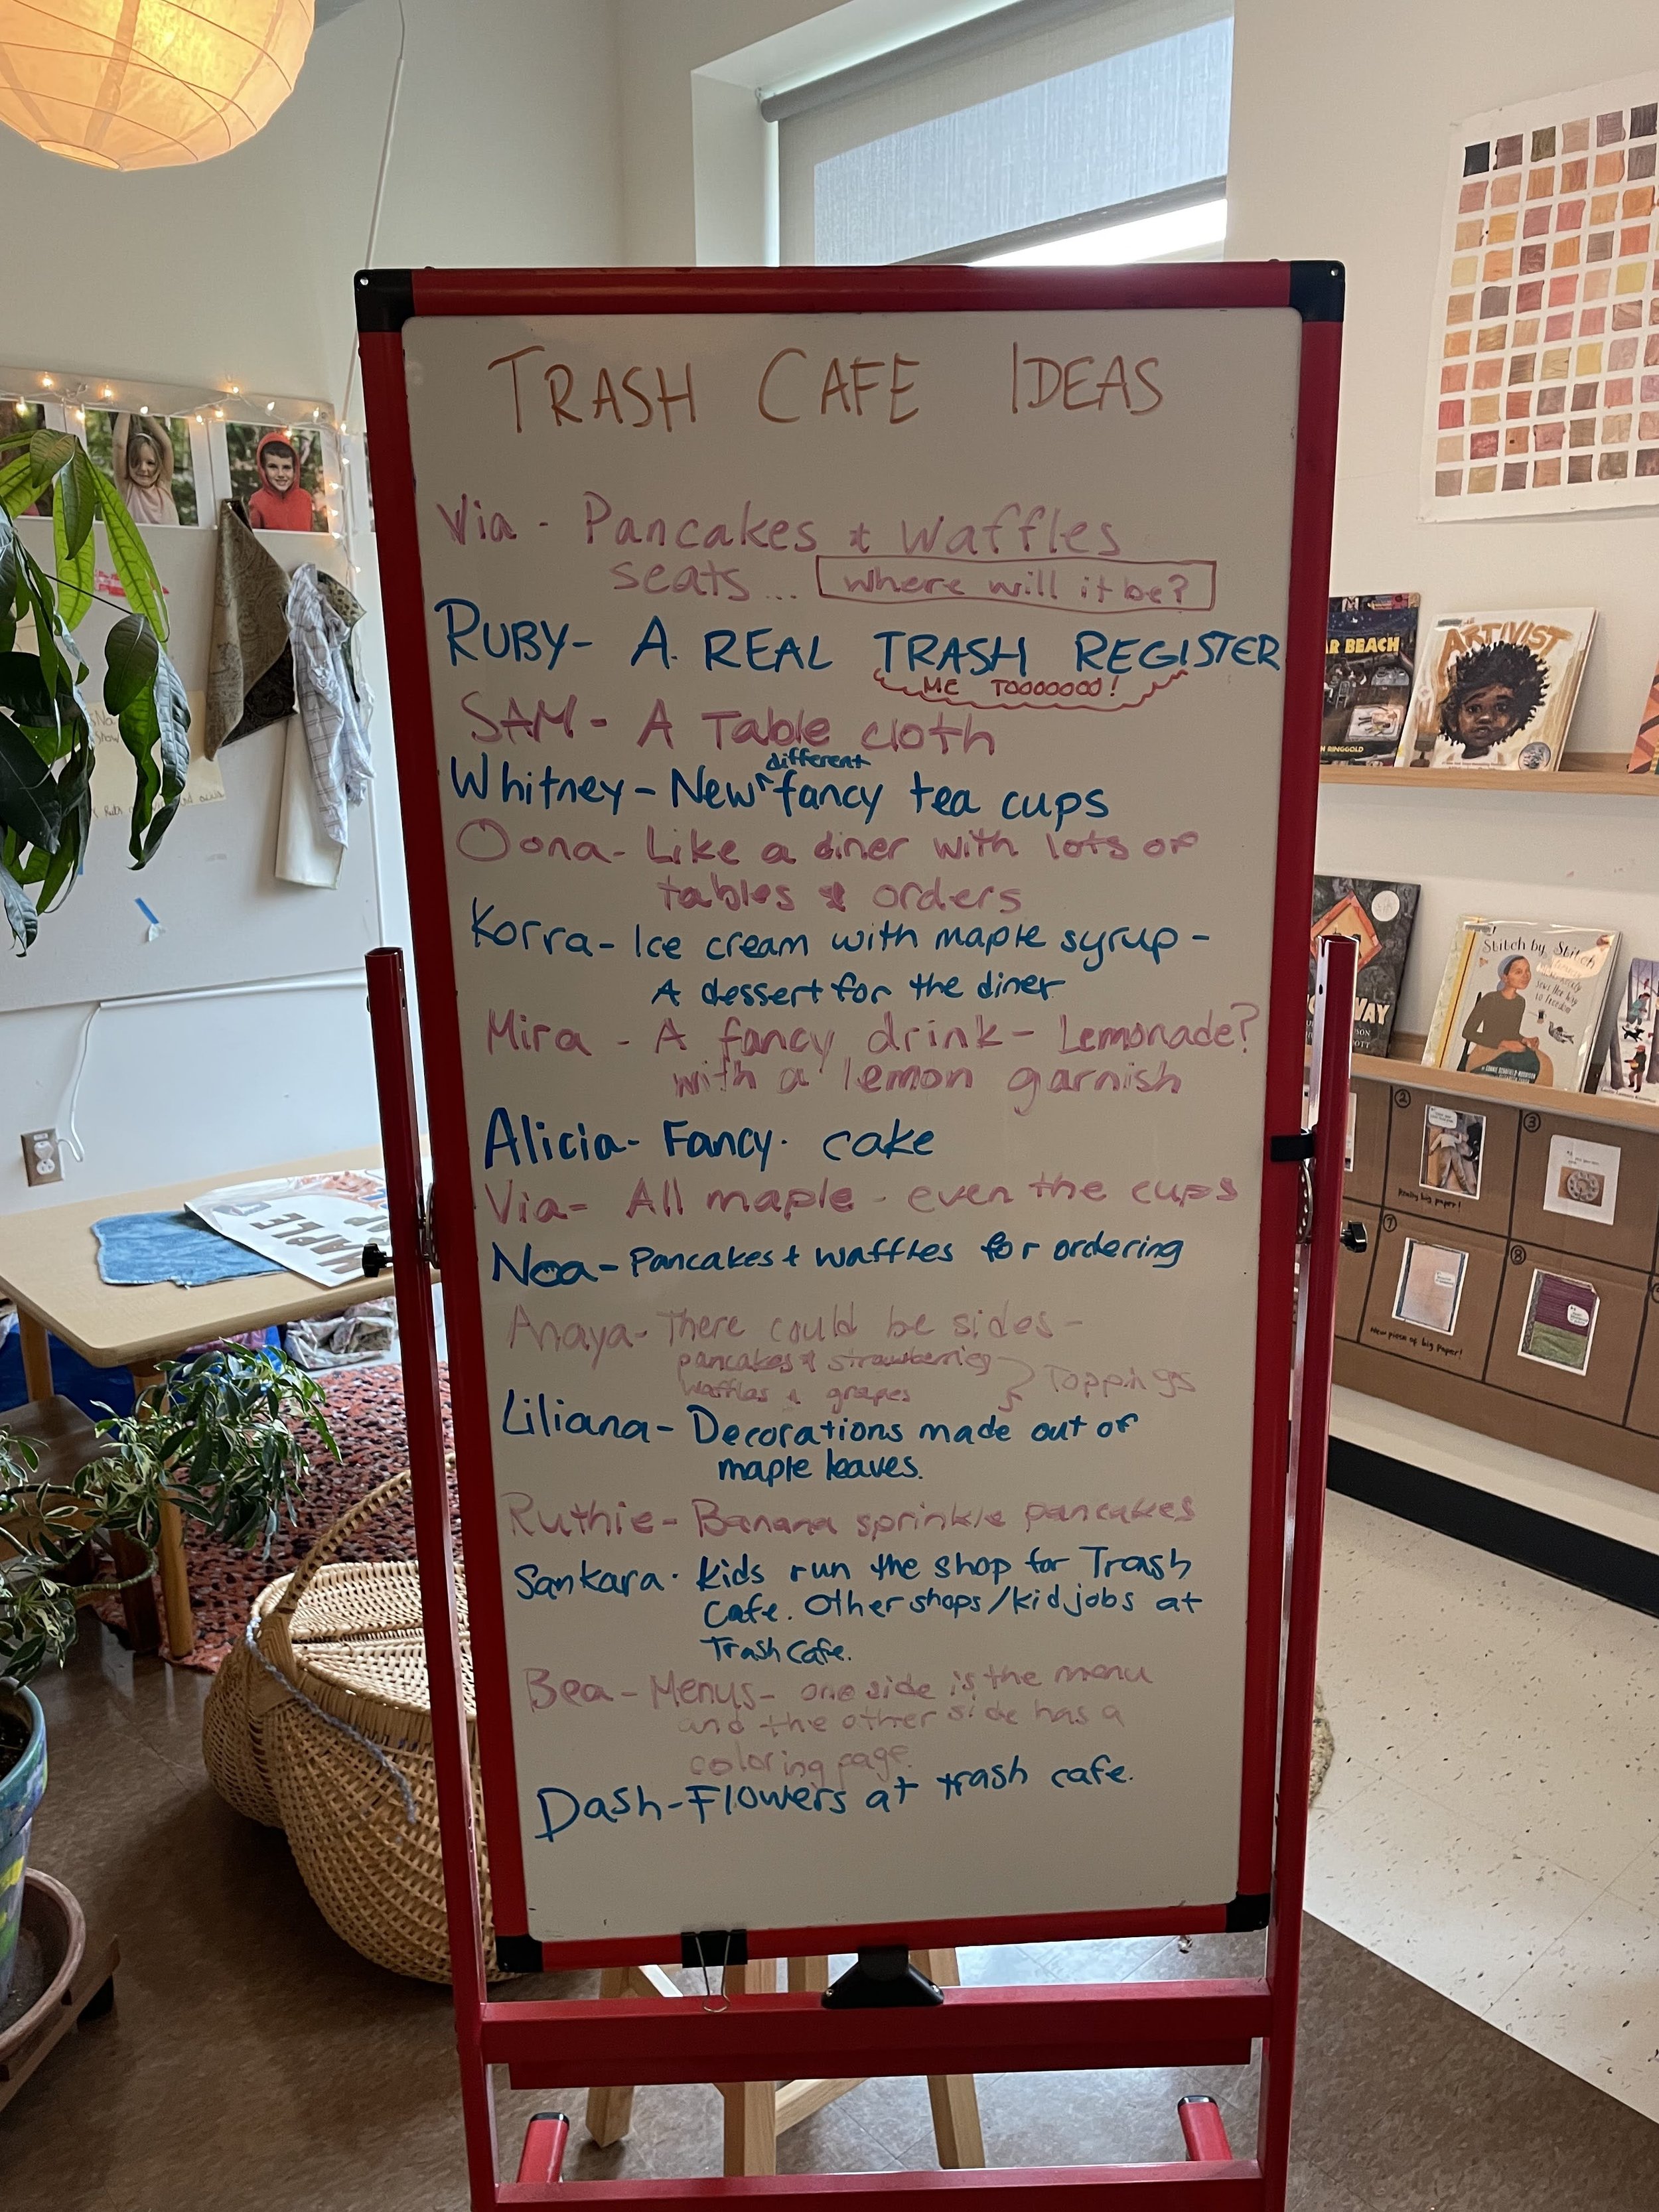 TRASH CAFE IDEAS
Via - Pancakes & Waffles
seats... where will it be?
RUBY - A REAL TRASH REGISTER
ME TOOOOOOO!
SAM - A Table cloth
different
Whitney - New ^ fancy tea cups
Oona - Like a diner with lots of
tables & orders
Korra - Ice cream with maple syrup -
A dessert for the diner
Mira - A fancy drink - Lemonade?
with a lemon garnish
Alicia - Fancy cake
Via - All maple - even the cups
Noa - Pancakes + waffles for ordering
Anaya - There could be sides -
pancakes & strawberries
waffles & grapes } Toppings
Liliana - Decorations made out of
maple leaves.
Ruthie - Banana sprinkle pancakes
Sankara - Kids run the shop for Trash
Cafe. Other shops/kid jobs at
Trash Cafe.
Bea - Menus - one side is the menu
and the other side has a
coloring page.
Dash - Flowers at trash cafe.
AR BEACH
RINGGOLD
ARTIVIST
WAY
Stitch by Stitch
MAPLE
②
Really big paper!
③
⑦
New piece of big paper!
⑧